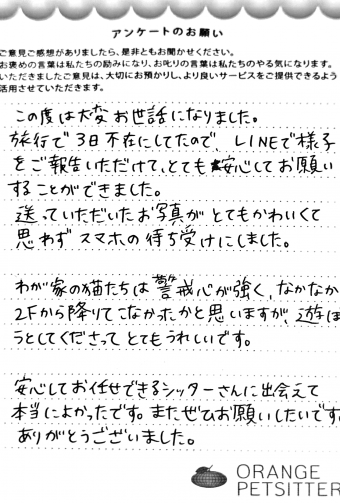 アンケートのお願い
ご意見ご感想がありましたら、是非ともお聞かせください。
お褒めの言葉は私たちの励みになり、お叱りの言葉は私たちのやる気になります。
いただきましたご意見は、大切にお預かりし、より良いサービスをご提供できるよう
活用させていただきます。
この度は大変お世話になりました。
旅行で3日不在にしてたので、LINEで様子
をご報告いただけて、とても安心してお願い
することができました。
送っていただいたお写真がとてもかわいくて
思わずスマホの待ち受けにしました。
わが家の猫たちは警戒心が強く、なかなか
2Fから降りてこなかったかと思いますが、遊ぼ
うとしてくださってとてもうれしいです。
安心してお任せできるシッターさんに出会えて
本当によかったです。またぜひお願いしたいです
ありがとうございました。
ORANGE
PETSITTER